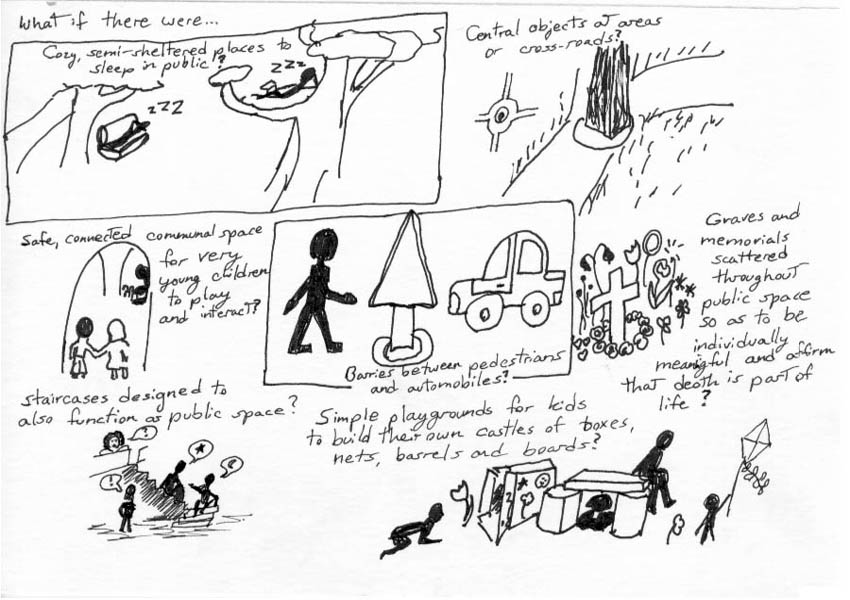 what if there were...
Cozy, semi-sheltered places to
sleep in public?
zzz
zzz
Central objects at areas
or cross-roads?
Safe, connected communal space
for very
young children
to play
and interact?
Barries between pedestrians
and automobiles?
Graves and
memorials
scattered
throughout
public space
so as to be
individually
meaningful and affirm
that death is part of
life?
staircases designed to
also function as public space?
?
!
Simple playgrounds for kids
to build their own castles of boxes,
nets, barrels and boards?